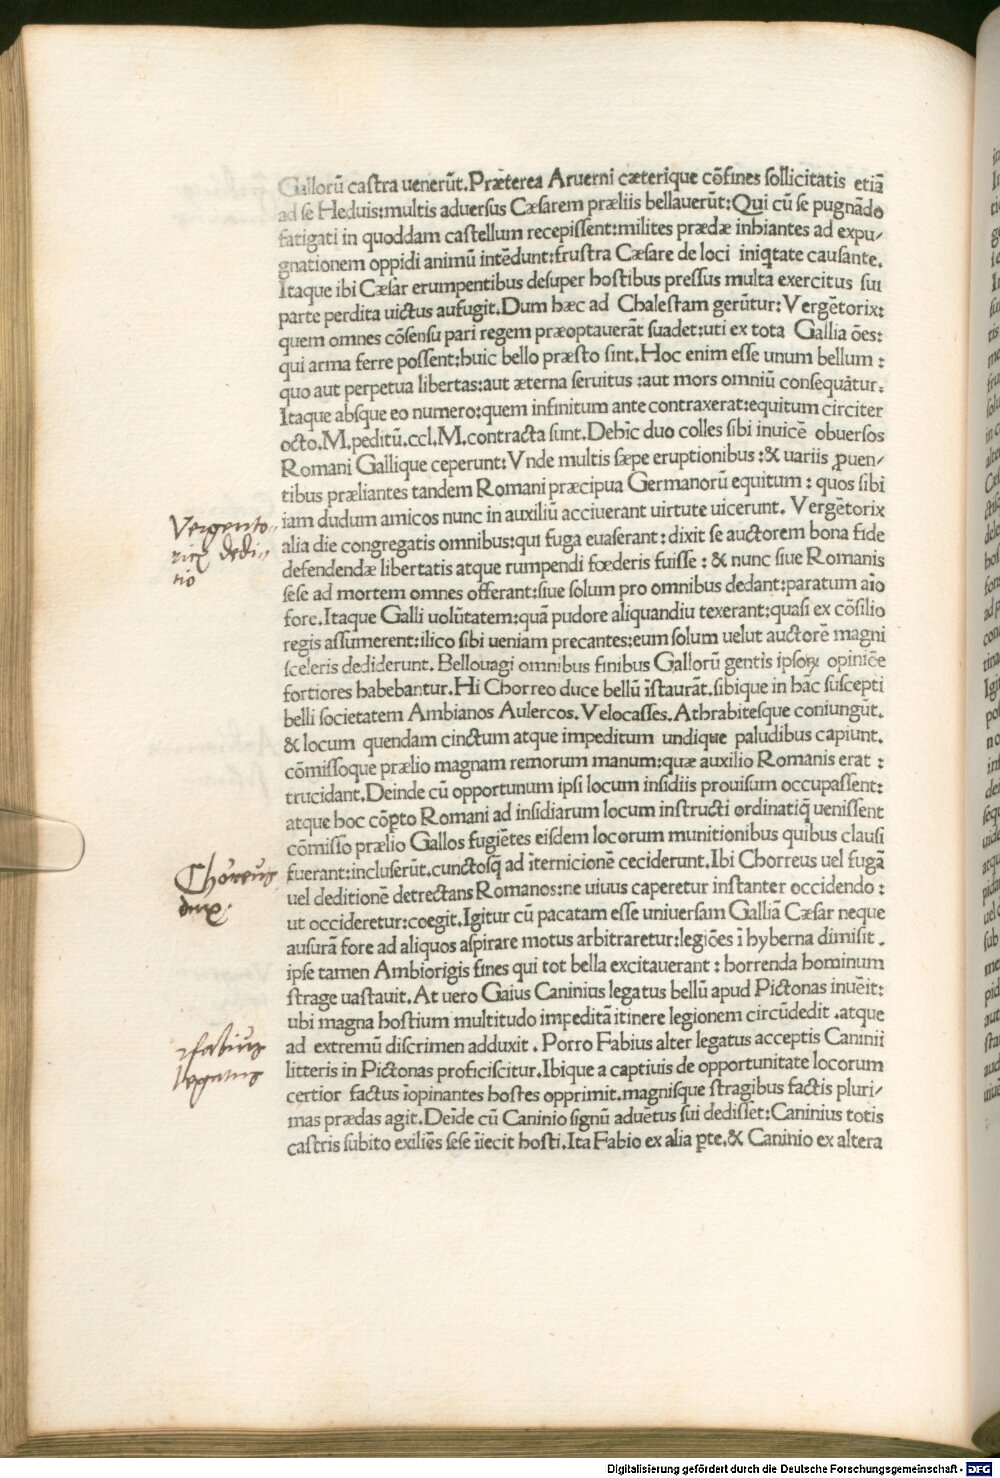 Gallorū castra uenerūt.Præterea Aruerni cæterique cōfines sollicitatis etiā
ad se Heduis:multis aduersus Cæsarem præliis bellauerūt:Qui cū se pugnādo
fatigati in quoddam castellum recepissent:milites prædæ inhiantes ad expu/
gnationem oppidi animū intēdunt:frustra Cæsare de loci iniqtate causante.
Itaque ibi Cæsar erumpentibus desuper hostibus pressus multa exercitus sui
parte perdita uictus aufugit.Dum hæc ad Chalestam gerūtur:Vergētorix:
quem omnes cōsensu pari regem præoptauerāt suadet:uti ex tota Gallia ōes:
qui arma ferre possent:huic bello præsto sint.Hoc enim esse unum bellum :
quo aut perpetua libertas:aut æterna seruitus :aut mors omniū consequātur.
Itaque absque eo numero:quem infinitum ante contraxerat:equitum circiter
octo.M.peditū.ccl.M.contracta sunt.Dehīc duo colles sibi inuicē obuersos
Romani Gallique ceperunt:Vnde multis sæpe eruptionibus :& uariis ꝓuen/
tibus præliantes tandem Romani præcipua Germanorū equitum : quos sibi
iam dudum amicos nunc in auxiliū acciuerant uirtute uicerunt. Vergētorix
alia die congregatis omnibus:qui fuga euaserant:dixit se auctorem bona fide
defendendæ libertatis atque rumpendi fœderis fuisse : & nunc siue Romanis
sese ad mortem omnes offerant:siue solum pro omnibus dedant:paratum aīo
fore.Itaque Galli uolūtatem:quā pudore aliquandiu texerant:quasi ex cōsilio
regis assumerent:ilico sibi ueniam precantes:eum solum uelut auctorē magni
sceleris dediderunt.Bellouagi omnibus finibus Gallorū gentis ipsoꝝ opiniōe
fortiores habebantur.Hi Chorreo duce bellū īstaurāt.sibique in hāc suscepti
belli societatem Ambianos Aulercos.Velocasses.Athrabitesque coniungūt.
& locum quendam cinctum atque impeditum undique paludibus capiunt.
cōmissoque prælio magnam remorum manum:quæ auxilio Romanis erat :
trucidant.Deinde cū opportunum ipsi locum insidiis prouisum occupassent:
atque hoc cōꝑto Romani ad insidiarum locum instructi ordinatiqꝫ uenissent
cōmisso prælio Gallos fugiētes eisdem locorum munitionibus quibus clausi
fuerant:incluserūt.cunctosqꝫ ad īternicionē ceciderunt.Ibi Chorreus uel fugā
uel deditionē detrectans Romanos:ne uiuus caperetur instanter occidendo :
ut occideretur:coegit.Igitur cū pacatam esse uniuersam Galliā Cæsar neque
ausurā fore ad aliquos aspirare motus arbitraretur:legiōes ī hyberna dimisit .
ipse tamen Ambiorigis fines qui tot bella excitauerant : horrenda hominum
strage uastauit.At uero Gaius Caninius legatus bellū apud Pictonas inuēit:
ubi magna hostium multitudo impeditā itinere legionem circūdedit .atque
ad extremū discrimen adduxit . Porro Fabius alter legatus acceptis Caninii
litteris in Pictonas proficiscitur.Ibique a captiuis de opportunitate locorum
certior factus īopinantes hostes opprimit.magnisque stragibus factis pluri/
mas prædas agit.Deīde cū Caninio signū aduētus sui dedisset:Caninius totis
castris subito exiliēs sese īiecit hosti.Ita Fabio ex alia ꝑte.& Caninio ex altera
Vergento
ricꝭ dedi
tio
Choreus
dux.
fabius
legatus
Digitalisierung gefördert durch die Deutsche Forschungsgemeinschaft - DFG